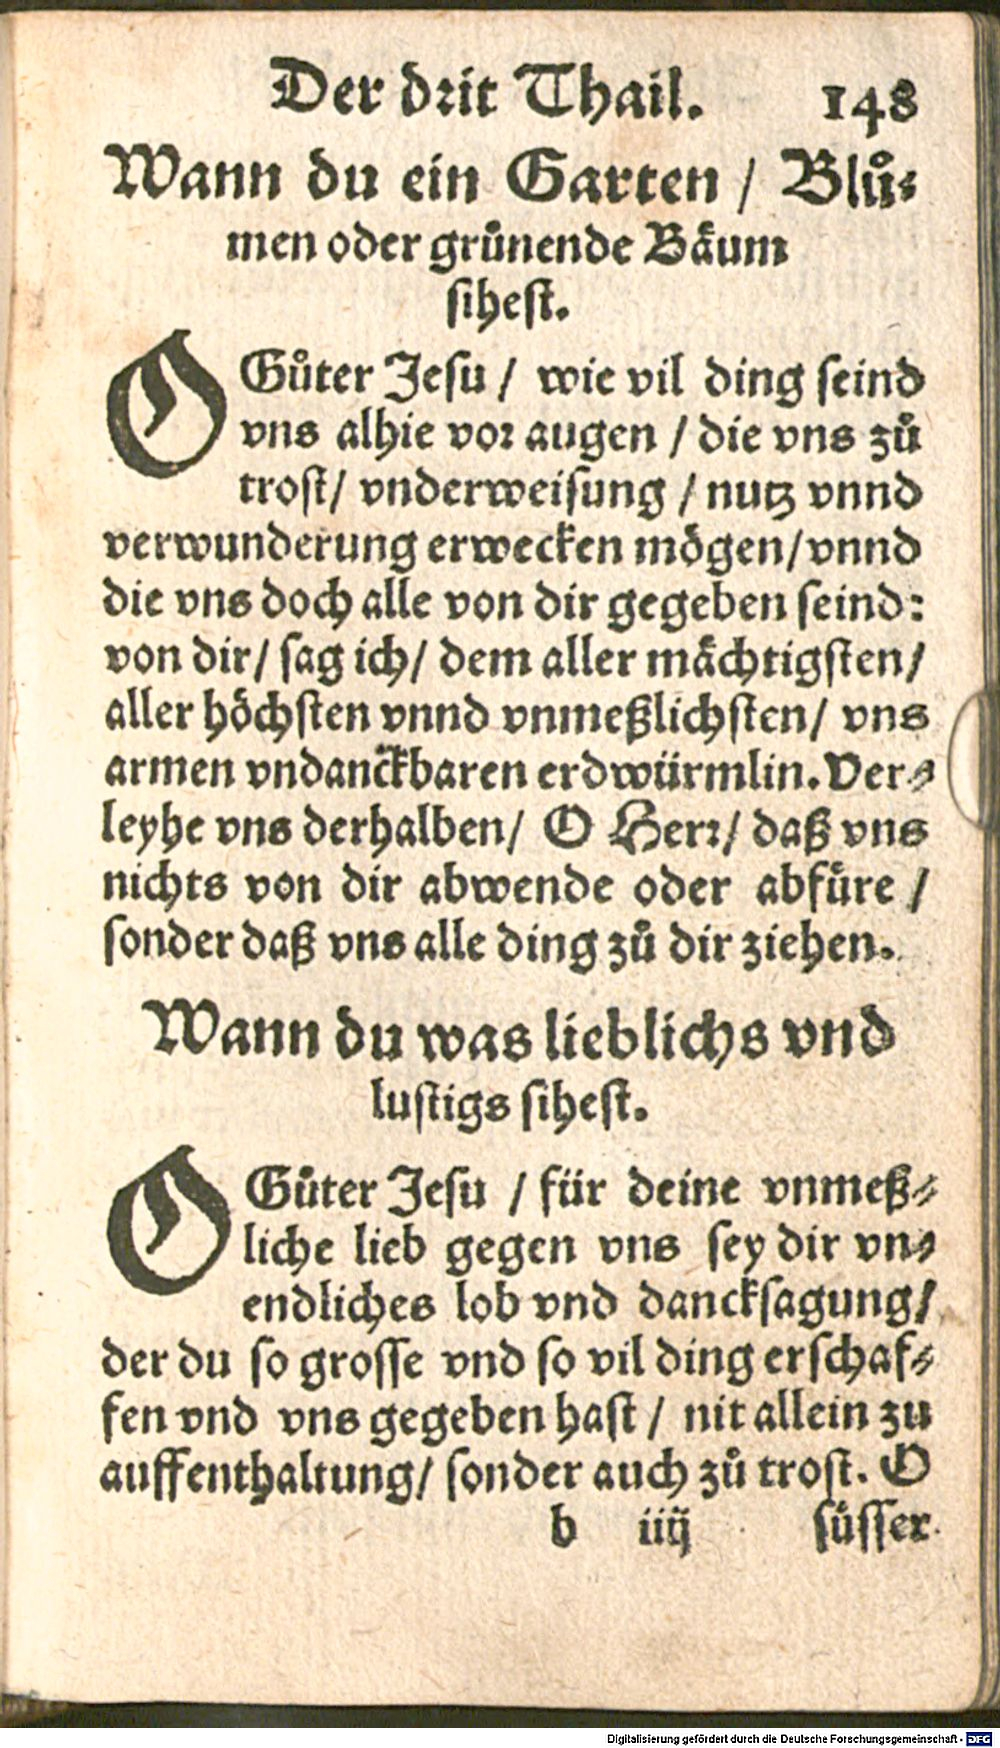 Der drit Thail. 148
Wann du ein Garten / Blů-
men oder grůnende Bäum
sihest.
O Gůter Jesu / wie vil ding seind
vns alhie vor augen / die vns zů
trost / vnderweisung / nutz vnnd
verwunderung erwecken mögen / vnnd
die vns doch alle von dir gegeben seind:
von dir / sag ich / dem aller mächtigsten /
aller höchsten vnnd vnmeßlichsten / vns
armen vndanckbaren erdwürmlin. Ver-
leyhe vns derhalben / O Herr / daß vns
nichts von dir abwende oder abfůre /
sonder daß vns alle ding zů dir ziehen.
Wann du was lieblichs vnd
lustigs sihest.
O Gůter Jesu / für deine vnmeß-
liche lieb gegen vns sey dir vn-
endliches lob vnd dancksagung /
der du so grosse vnd so vil ding erschaf-
fen vnd vns gegeben hast / nit allein zu
auffenthaltung / sonder auch zů trost. O
b iiij sůsser
Digitalisierung gefördert durch die Deutsche Forschungsgemeinschaft - DFG